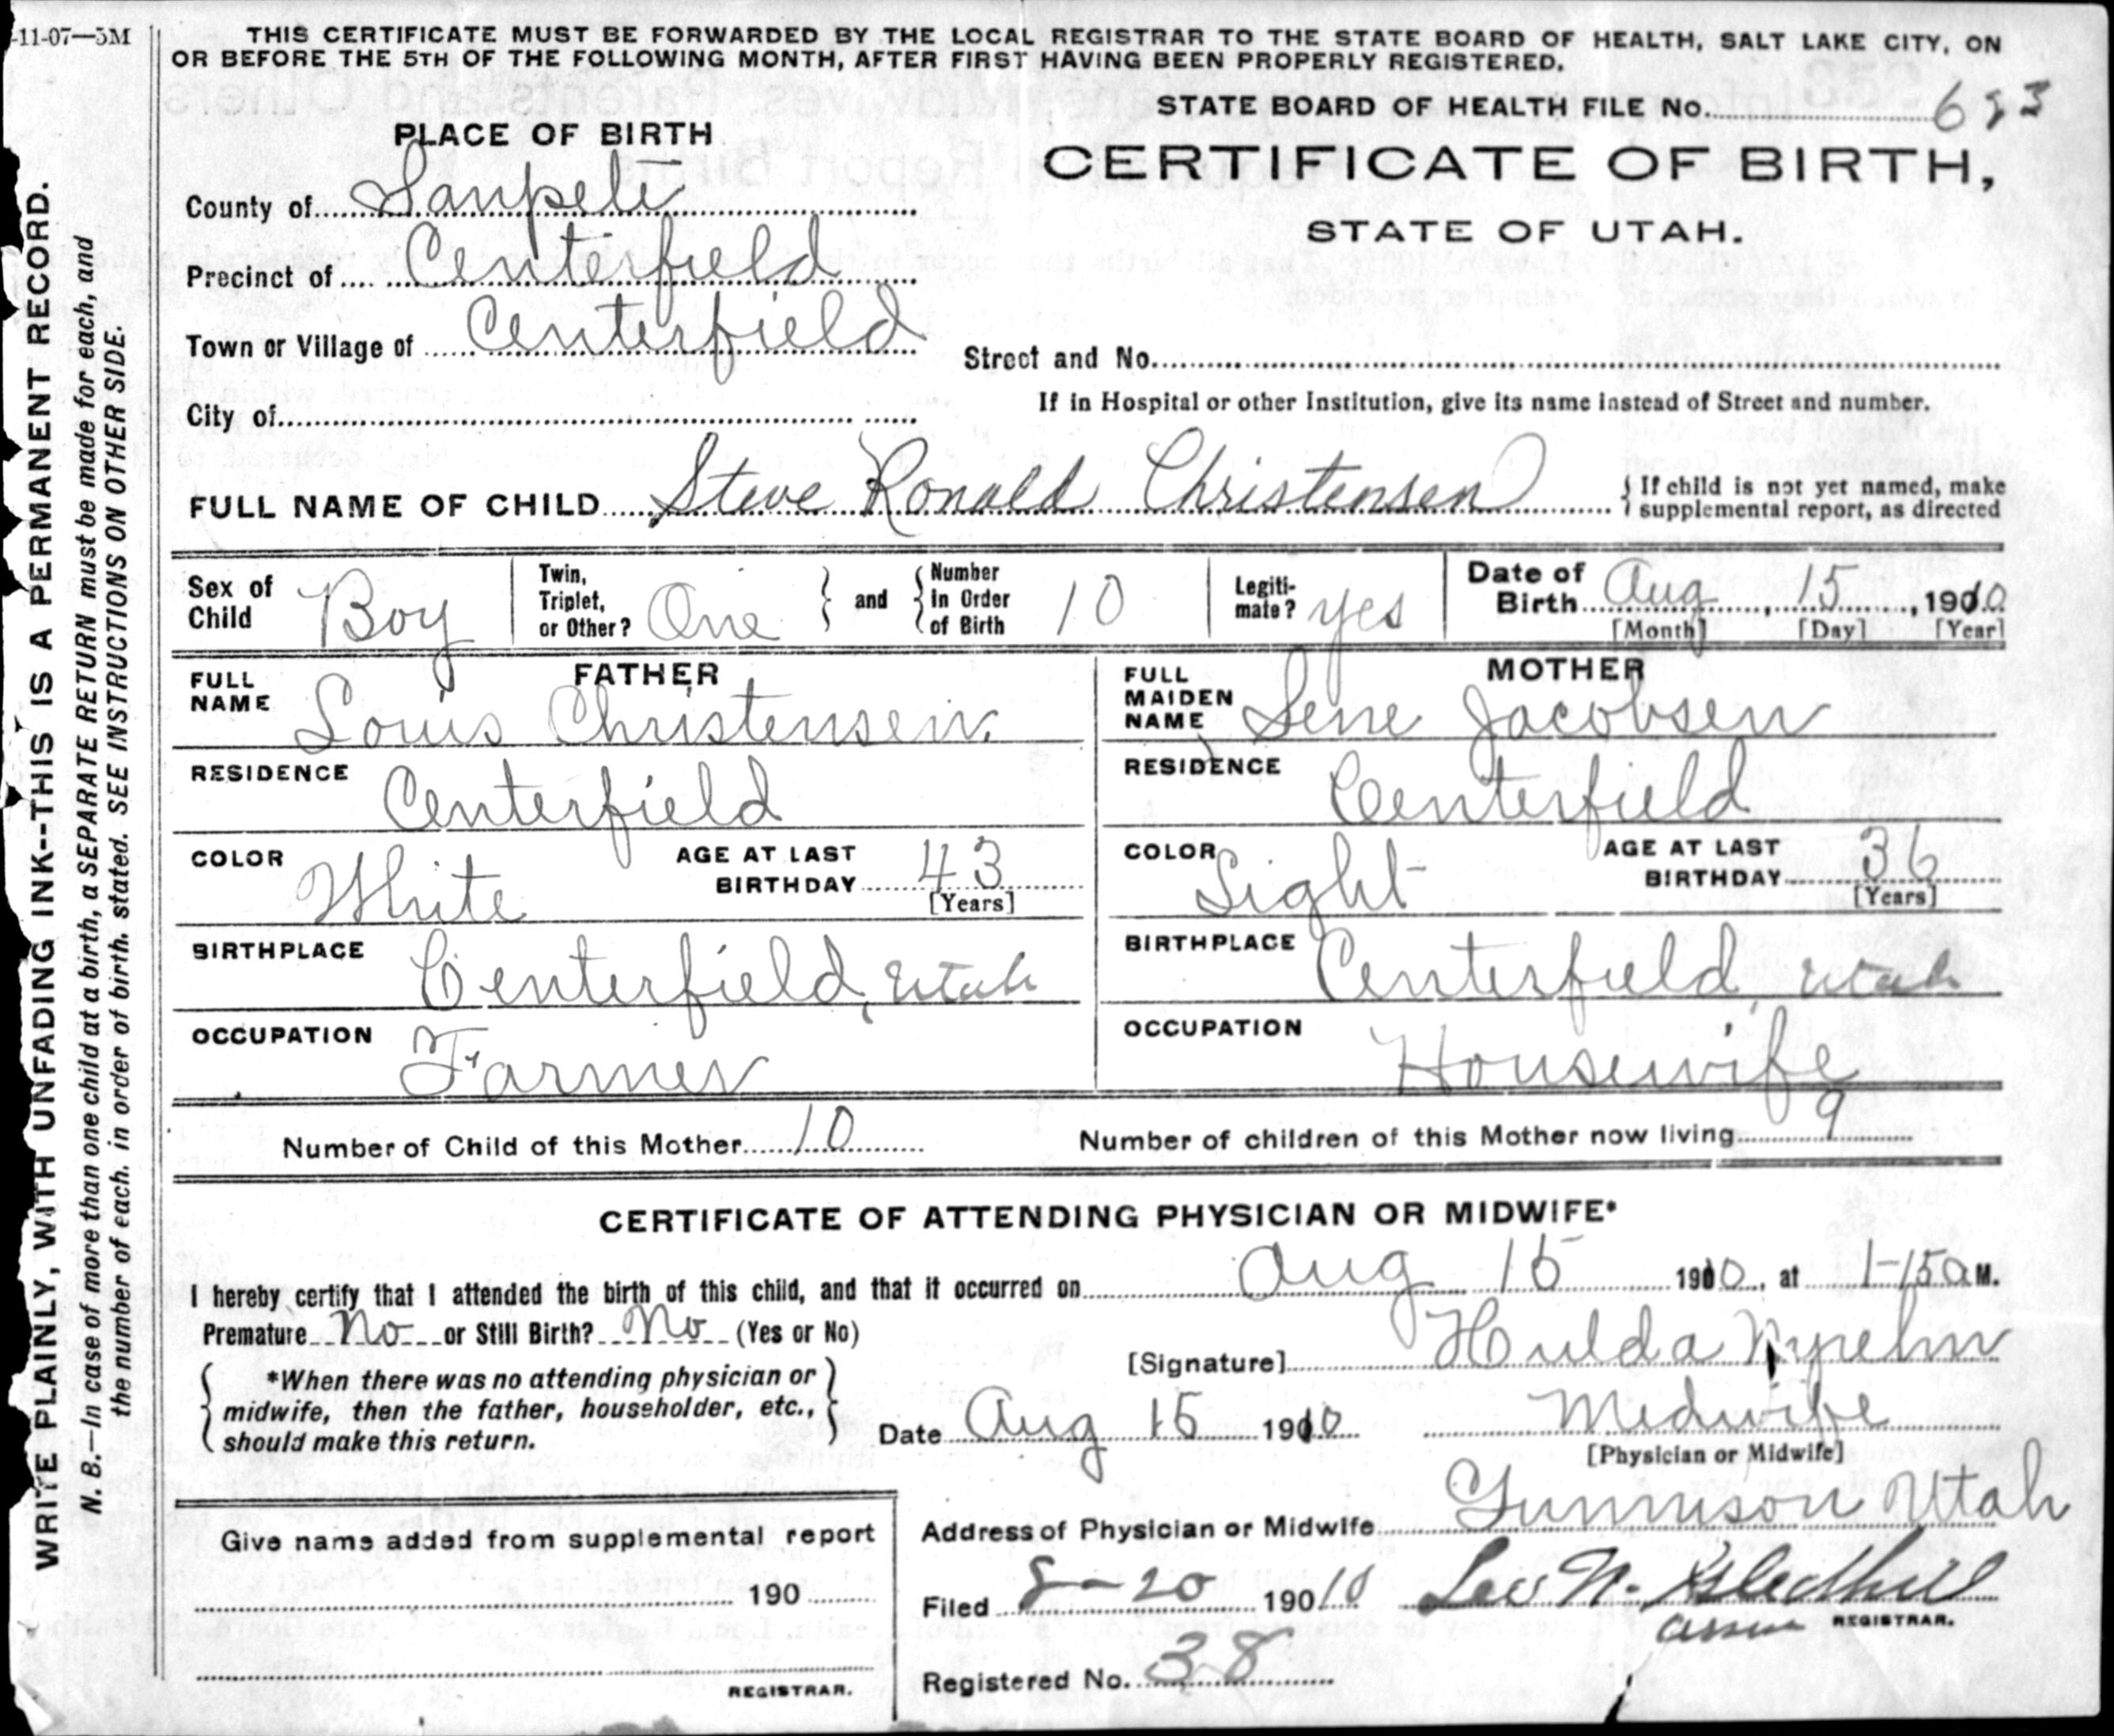 -11-07—5M
THIS CERTIFICATE MUST BE FORWARDED BY THE LOCAL REGISTRAR TO THE STATE BOARD OF HEALTH, SALT LAKE CITY, ON
OR BEFORE THE 5TH OF THE FOLLOWING MONTH, AFTER FIRST HAVING BEEN PROPERLY REGISTERED.
STATE BOARD OF HEALTH FILE No. 683
PLACE OF BIRTH
CERTIFICATE OF BIRTH,
STATE OF UTAH.
County of Sanpete
Precinct of Centerfield
Town or Village of Centerfield
Street and No.
If in Hospital or other Institution, give its name instead of Street and number.
City of
FULL NAME OF CHILD Steve Ronald Christensen
{ If child is not yet named, make
supplemental report, as directed
Sex of Child Boy
Twin, Triplet, or Other? One } and { Number in Order of Birth 10
Legiti-mate? yes
Date of Birth Aug, 15, 1910
[Month] [Day] [Year]
FATHER
FULL NAME Louis Christensen
MOTHER
FULL MAIDEN NAME Sene Jacobsen
RESIDENCE Centerfield
RESIDENCE Centerfield
COLOR White
AGE AT LAST BIRTHDAY 43
[Years]
COLOR Light
AGE AT LAST BIRTHDAY 36
[Years]
BIRTHPLACE Centerfield, Utah
BIRTHPLACE Centerfield, Utah
OCCUPATION Farmer
OCCUPATION Housewife
Number of Child of this Mother 10
Number of children of this Mother now living 9
CERTIFICATE OF ATTENDING PHYSICIAN OR MIDWIFE*
I hereby certify that I attended the birth of this child, and that it occurred on Aug 15 1910, at 1-15 a M.
Premature No or Still Birth? No (Yes or No)
[Signature] Hulda
{ *When there was no attending physician or
midwife, then the father, householder, etc.,
should make this return. }
Date Aug 15 1910
Midwife
[Physician or Midwife]
Address of Physician or Midwife Gunnison Utah
Give name added from supplemental report
190
REGISTRAR.
Filed 8-20 1910 Leo N. Gledhill
REGISTRAR.
Registered No. 38
WRITE PLAINLY, WITH UNFADING INK--THIS IS A PERMANENT RECORD.
N. B.—In case of more than one child at a birth, a SEPARATE RETURN must be made for each, and
the number of each, in order of birth, stated. SEE INSTRUCTIONS ON OTHER SIDE.